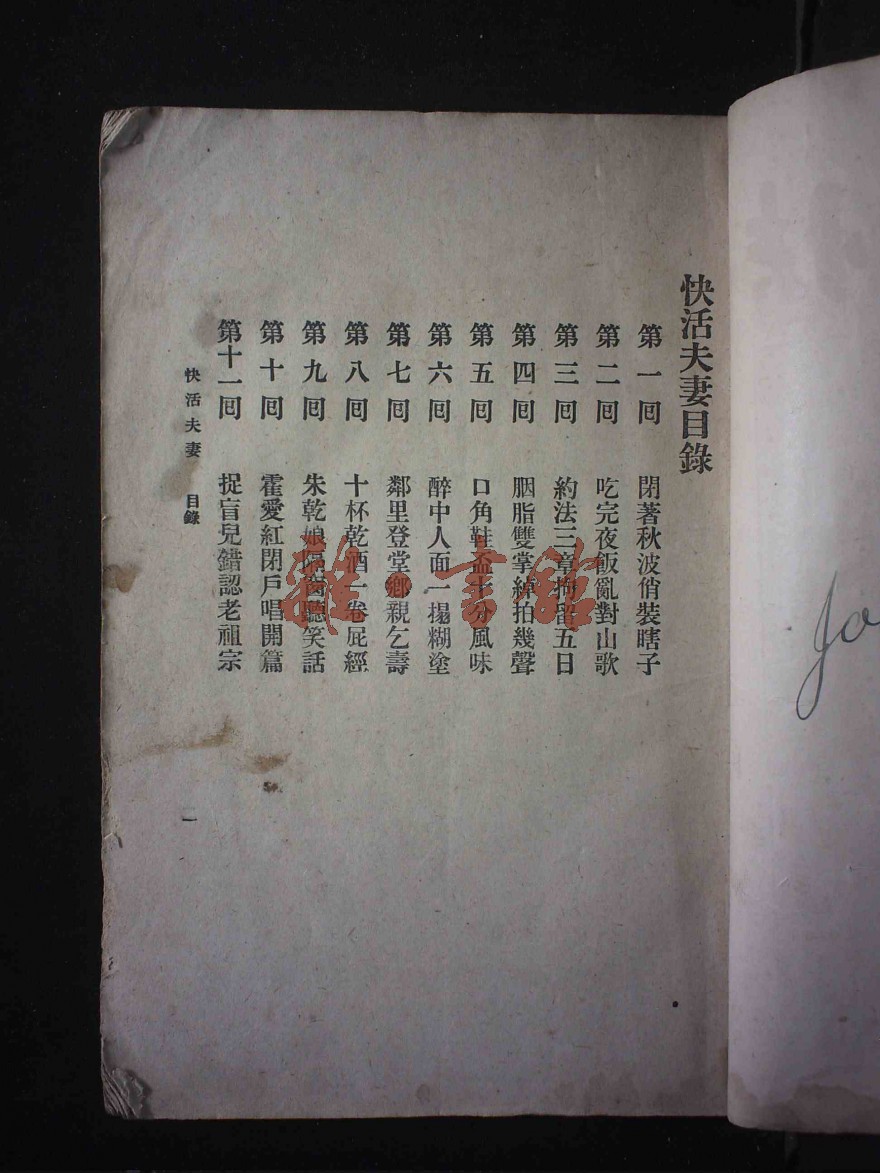 快活夫妻目錄
第一囘 閉著秋波俏裝瞎子
第二囘 吃完夜飯亂對山歌
第三囘 約法三章拘留五日
第四囘 胭脂雙掌綽拍幾聲
第五囘 口角鞋盃十分風味
第六囘 醉中人面一搨糊塗
第七囘 鄰里登堂鄉親乞壽
第八囘 十杯乾酒一卷屁經
第九囘 朱乾娘隔窗聽笑話
第十囘 霍愛紅閉戶唱開篇
第十一囘 捉盲兒錯認老祖宗
快活夫妻 目錄
一
雜書館
Jo